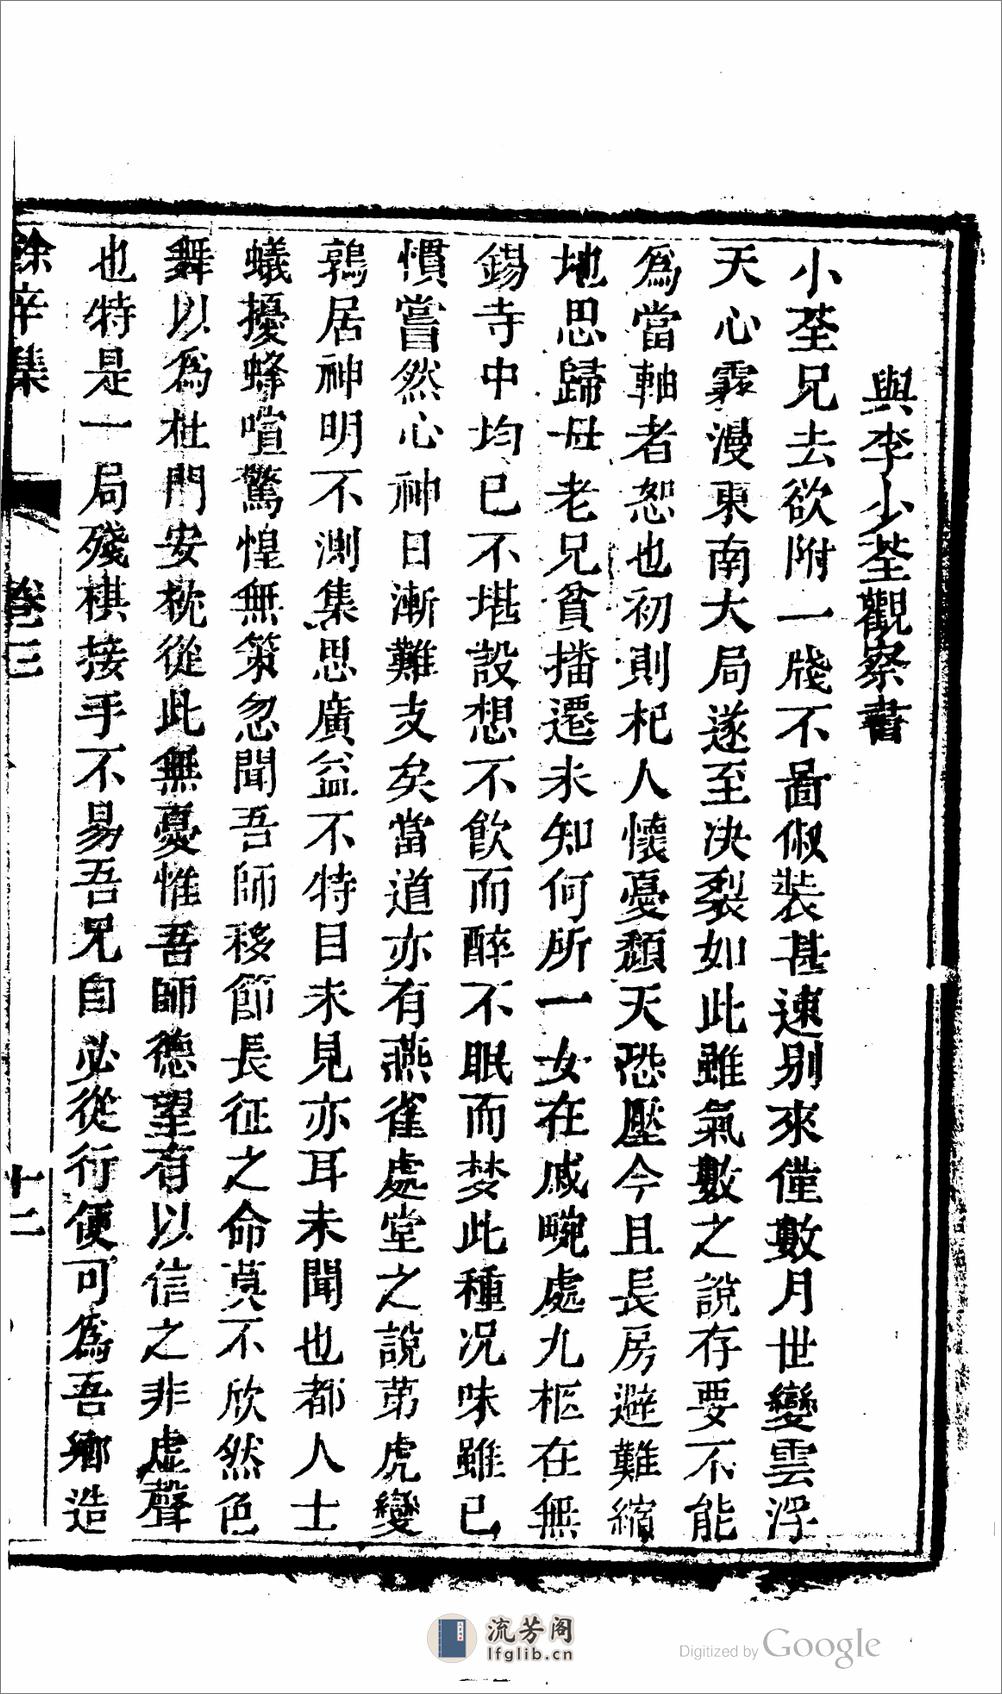 與李少荃觀察書
小荃兄去欲附一牋不啚俶裝甚速别來僅數月世變雲浮
天心霧漫東南大局遂至决裂如此雖氣數之說存要不能
爲當軸者恕也初則杞人懷憂頽天恐壓今且長房避難縮
地思歸母老兄貧播遷未知何所一女在戚畹處九柩在無
錫寺中均已不堪設想不飲而醉不眠而梦此種况味雖已
慣嘗然心神日漸難支矣當道亦有燕雀處堂之說苐虎變
鶉居神明不測集思廣益不特目未見亦耳未聞也都人士
蟻擾蜂喧驚惶無策忽聞吾師移節長征之命莫不欣然色
舞以爲杜門安枕從此無憂惟吾師德望有以信之非虛聲
也特是一局殘棋接手不易吾兄自必從行便可爲吾鄉造
餘辛集 卷三 十二
流芳阁
lfglib.cn
Digitized by Google